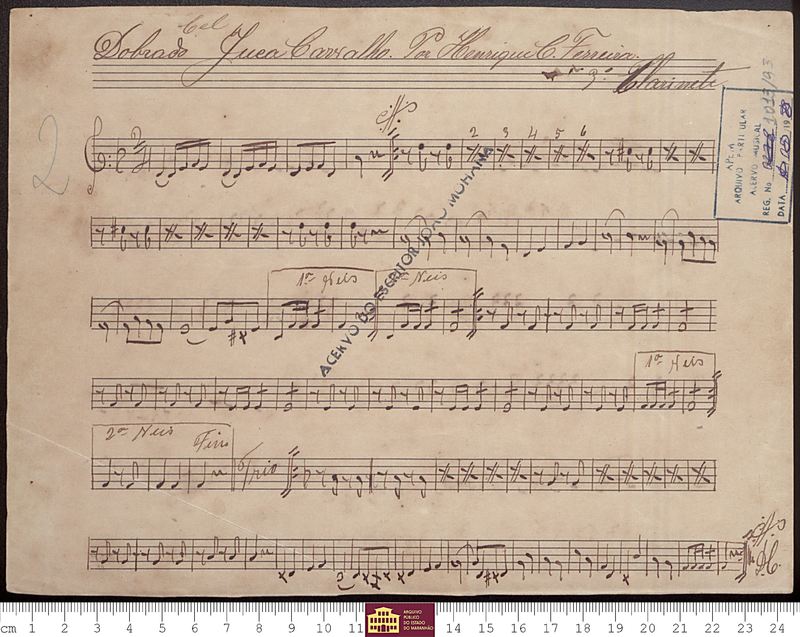 Cel
Dobrado Juca Carvalho. Por Henrique C. Ferreira.
3º Clarinete
APEM
ARQUIVO PARTICULAR
ACERVO MUSICAL
REG. No 1013/93
DATA
2
2 3 4 5 6
ACERVO DO ESCRITOR JOÃO MOHANA
1ª Neis
2ª Neis
1ª Neis
2ª Neis Fim
Trio
D.C.
cm 1 2 3 4 5 6 7 8 9 10 11 14 15 16 17 18 19 20 21 22 23 24
ARQUIVO
PÚBLICO
DO ESTADO
DO MARANHÃO